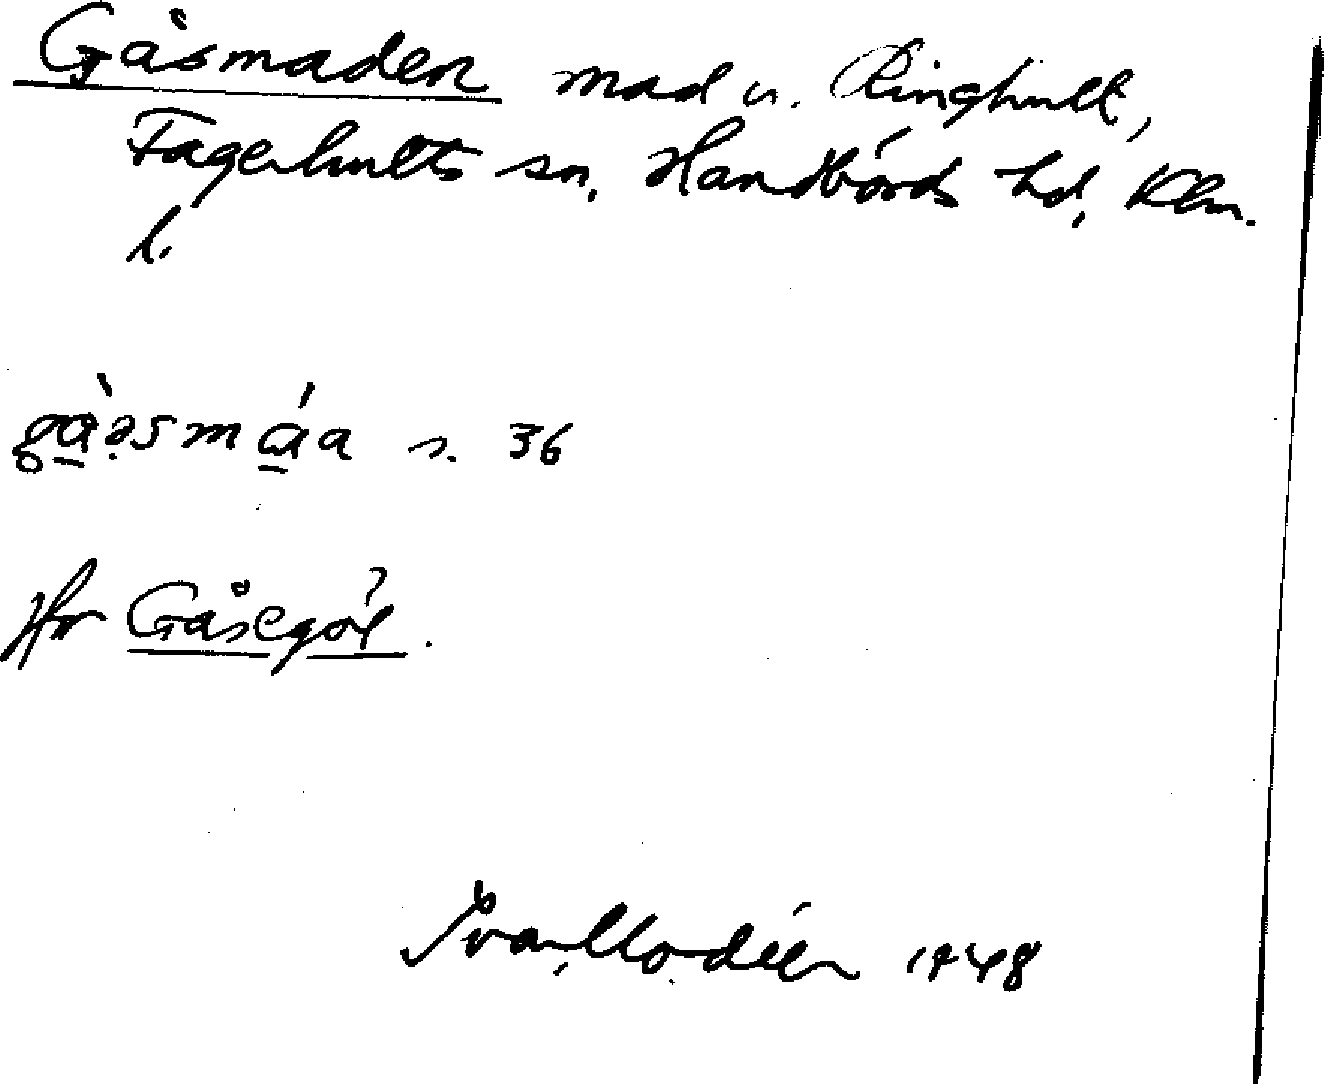 Gåsmaden mad u. Ringhult,
Fagerhults sn, Handbörds hd, Klm.
l.
s. 36
Jfr Gåsegöl.
Ivar Modéer 1948